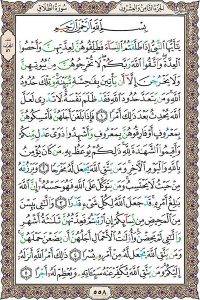 الجزء الثامن والعشرون سورة الطلاق
بِسْمِ ٱللَّهِ ٱلرَّحْمَٰنِ ٱلرَّحِيمِ
يَٰٓأَيُّهَا ٱلنَّبِيُّ إِذَا طَلَّقْتُمُ ٱلنِّسَآءَ فَطَلِّقُوهُنَّ لِعِدَّتِهِنَّ وَأَحْصُوا۟
ٱلْعِدَّةَ ۖ وَٱتَّقُوا۟ ٱللَّهَ رَبَّكُمْ ۖ لَا تُخْرِجُوهُنَّ مِنۢ بُيُوتِهِنَّ
وَلَا يَخْرُجْنَ إِلَّآ أَن يَأْتِينَ بِفَٰحِشَةٍ مُّبَيِّنَةٍ ۚ وَتِلْكَ حُدُودُ
ٱللَّهِ ۚ وَمَن يَتَعَدَّ حُدُودَ ٱللَّهِ فَقَدْ ظَلَمَ نَفْسَهُۥ ۚ لَا تَدْرِى لَعَلَّ
ٱللَّهَ يُحْدِثُ بَعْدَ ذَٰلِكَ أَمْرًا ١ فَإِذَا بَلَغْنَ أَجَلَهُنَّ فَأَمْسِكُوهُنَّ
بِمَعْرُوفٍ أَوْ فَارِقُوهُنَّ بِمَعْرُوفٍ وَأَشْهِدُوا۟ ذَوَىْ عَدْلٍ مِّنكُمْ
وَأَقِيمُوا۟ ٱلشَّهَٰدَةَ لِلَّهِ ۚ ذَٰلِكُمْ يُوعَظُ بِهِۦ مَن كَانَ يُؤْمِنُ
بِٱللَّهِ وَٱلْيَوْمِ ٱلْـَٔاخِرِ ۚ وَمَن يَتَّقِ ٱللَّهَ يَجْعَل لَّهُۥ مَخْرَجًا ٢ وَيَرْزُقْهُ
مِنْ حَيْثُ لَا يَحْتَسِبُ ۚ وَمَن يَتَوَكَّلْ عَلَى ٱللَّهِ فَهُوَ حَسْبُهُۥٓ ۚ إِنَّ ٱللَّهَ
بَٰلِغُ أَمْرِهِۦ ۚ قَدْ جَعَلَ ٱللَّهُ لِكُلِّ شَىْءٍ قَدْرًا ٣ وَٱلَّٰٓـِٔى يَئِسْنَ
مِنَ ٱلْمَحِيضِ مِن نِّسَآئِكُمْ إِنِ ٱرْتَبْتُمْ فَعِدَّتُهُنَّ ثَلَٰثَةُ أَشْهُرٍ
وَٱلَّٰٓـِٔى لَمْ يَحِضْنَ ۚ وَأُو۟لَٰتُ ٱلْأَحْمَالِ أَجَلُهُنَّ أَن يَضَعْنَ حَمْلَهُنَّ ۚ
وَمَن يَتَّقِ ٱللَّهَ يَجْعَل لَّهُۥ مِنْ أَمْرِهِۦ يُسْرًا ٤ ذَٰلِكَ أَمْرُ ٱللَّهِ أَنزَلَهُۥٓ
إِلَيْكُمْ ۚ وَمَن يَتَّقِ ٱللَّهَ يُكَفِّرْ عَنْهُ سَيِّـَٔاتِهِۦ وَيُعْظِمْ لَهُۥٓ أَجْرًا ٥
٥٥٨